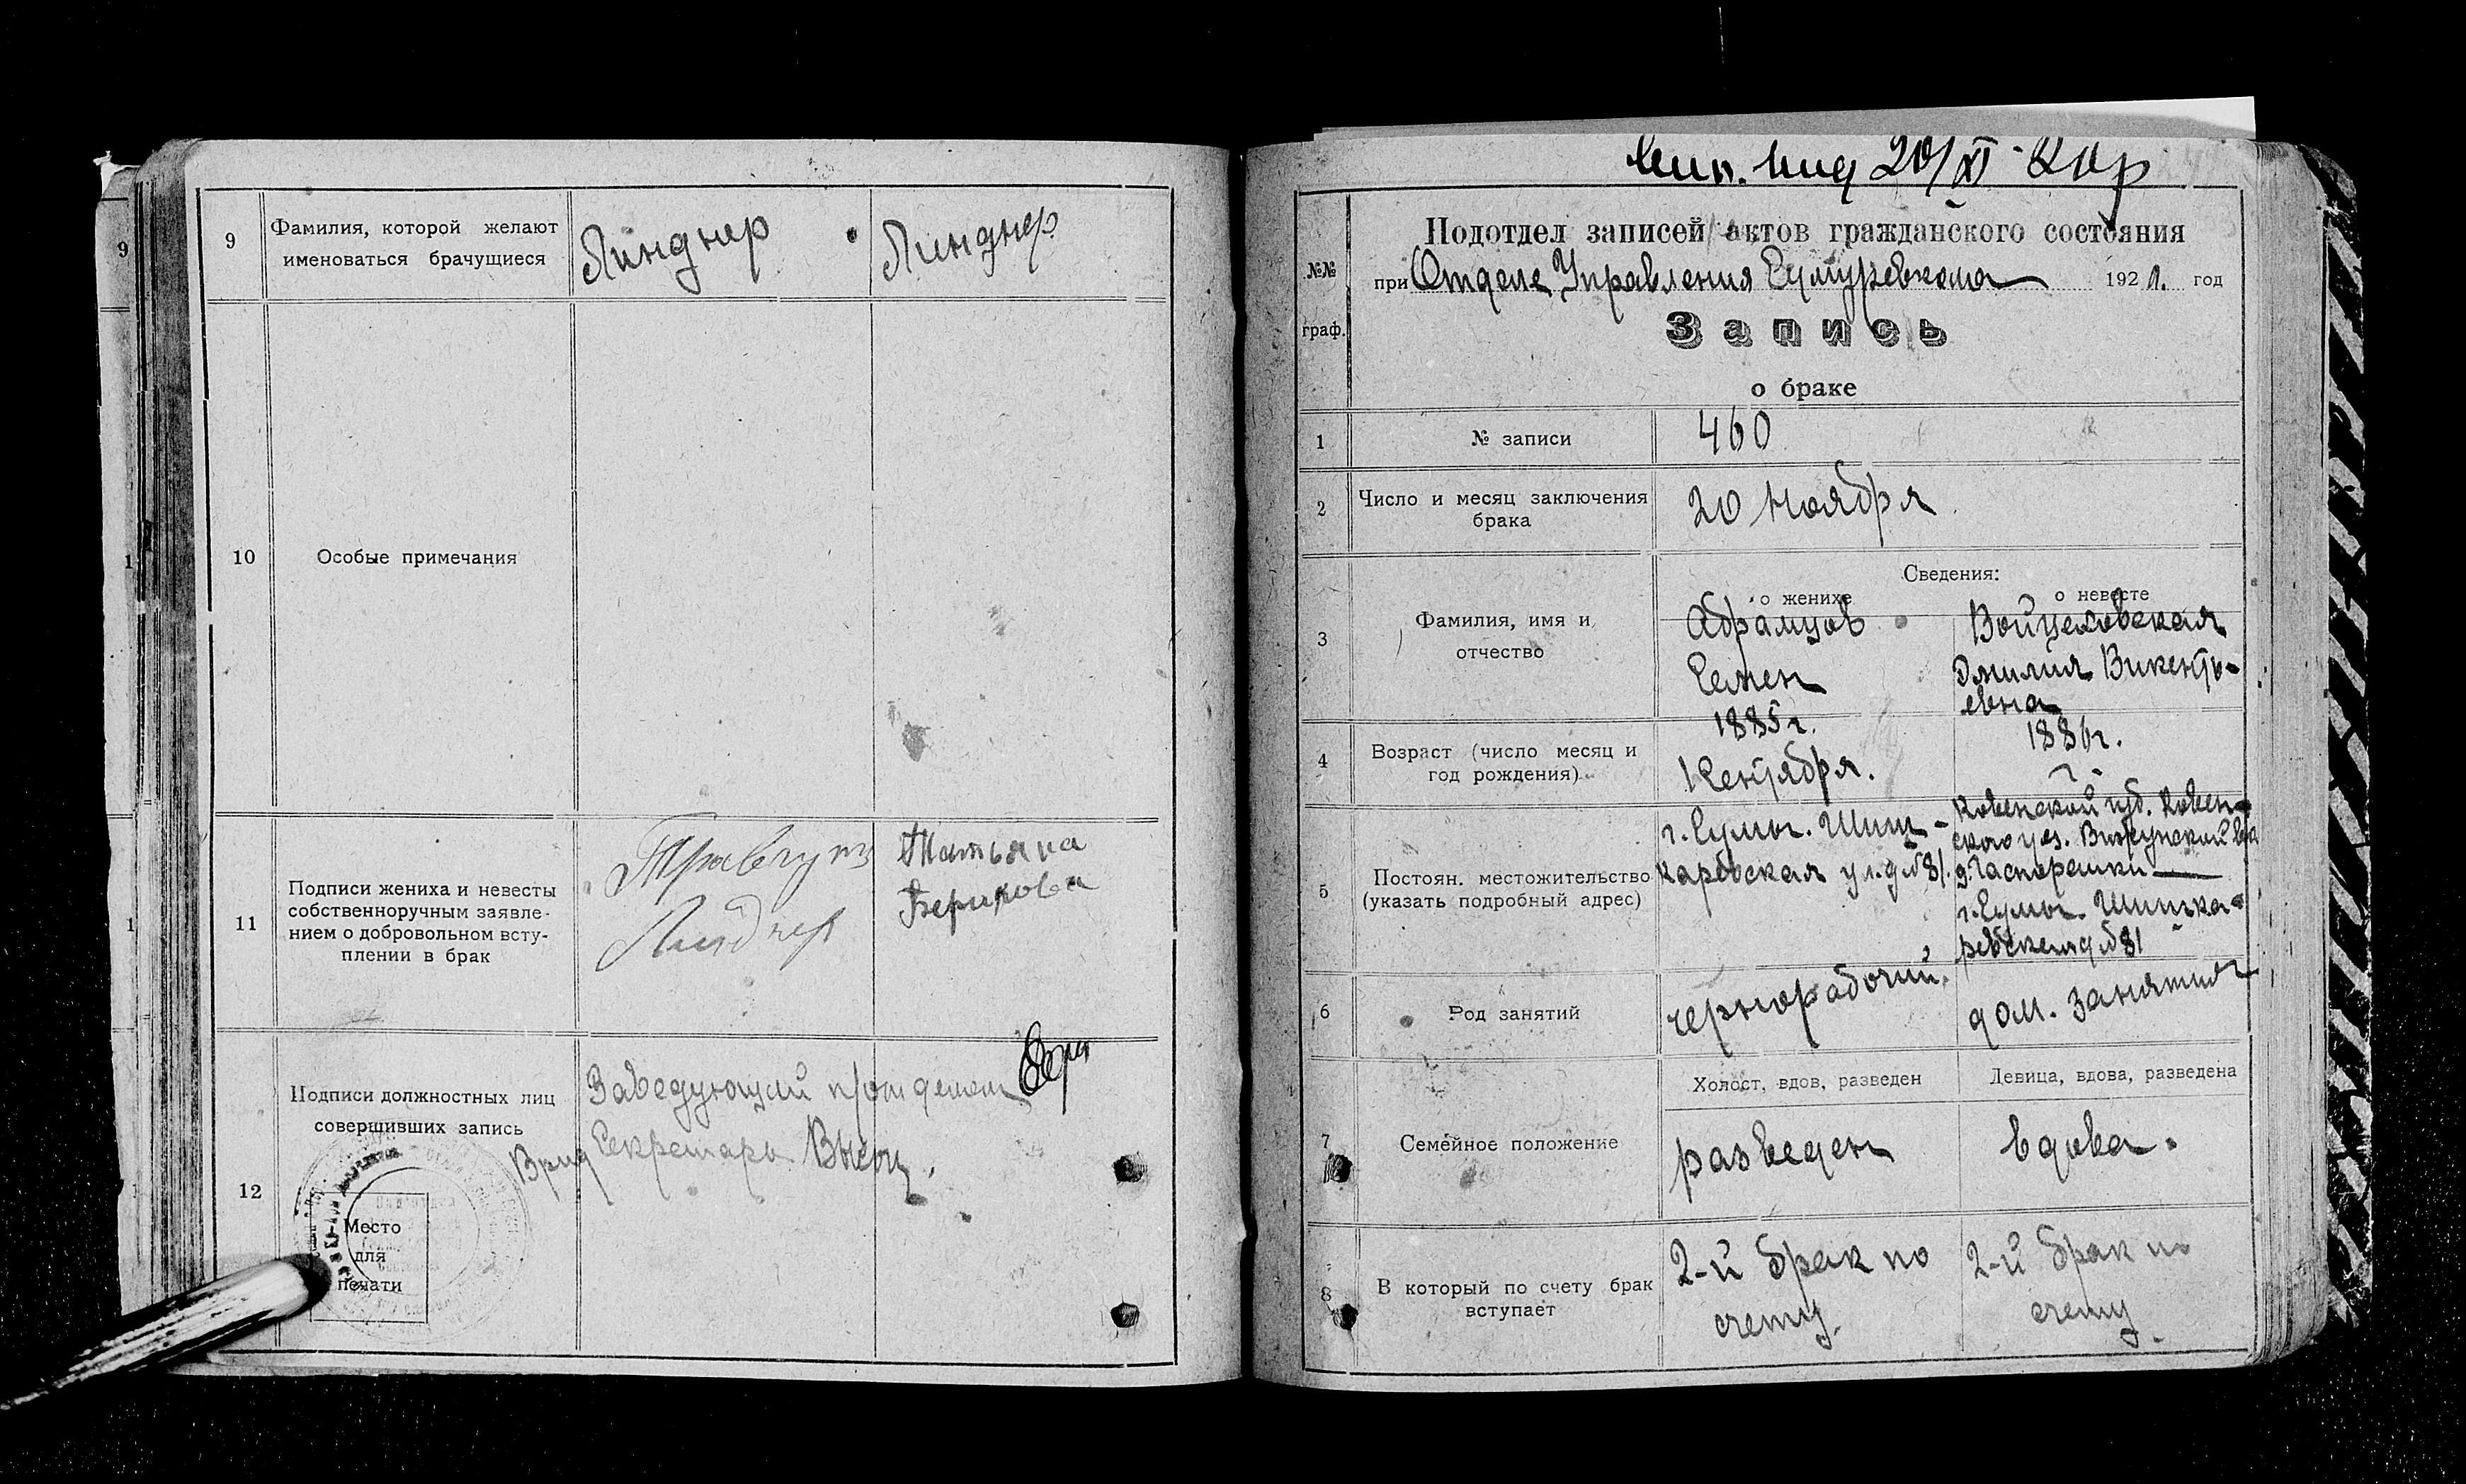 9
Фамилия, которой желают
именоваться брачущиеся
Линднер
Линднер
10
Особые примечания
11
Подписи жениха и невесты
собственноручным заявле-
нием о добровольном всту-
плении в брак
Линднер
Татьяна
12
Подписи должностных лиц
совершивших запись
Заведующий п/отделом
Врид Секретарь
Место
для
печати
20/XI 20г
№№
граф.
Подотдел записей актов гражданского состояния
при Отделе Управления Сумуревкома 192 год
Запись
о браке
1
№ записи
460
2
Число и месяц заключения
брака
20 Ноября
Сведения:
о женихе
о невесте
3
Фамилия, имя и
отчество
Абрамцов
Семен
Войцеховская
Эмилия Викенть-
евна
4
Возраст (число месяц и
год рождения)
1885г.
1 Сентября.
1886г.
?
5
Постоян. местожительство
(указать подробный адрес)
г. Сумы. Шиш-
карёвская ул. д № 81.
Ковенской губ. Ковен-
ского уез.
г. Сумы. Шишка-
ревская д № 81
6
Род занятий
чернорабочий.
дом. занятия
7
Семейное положение
Холост, вдов, разведен
Девица, вдова, разведена
разведен
вдова.
8
В который по счету брак
вступает
2-й брак по
счету.
2-й брак по
счету.